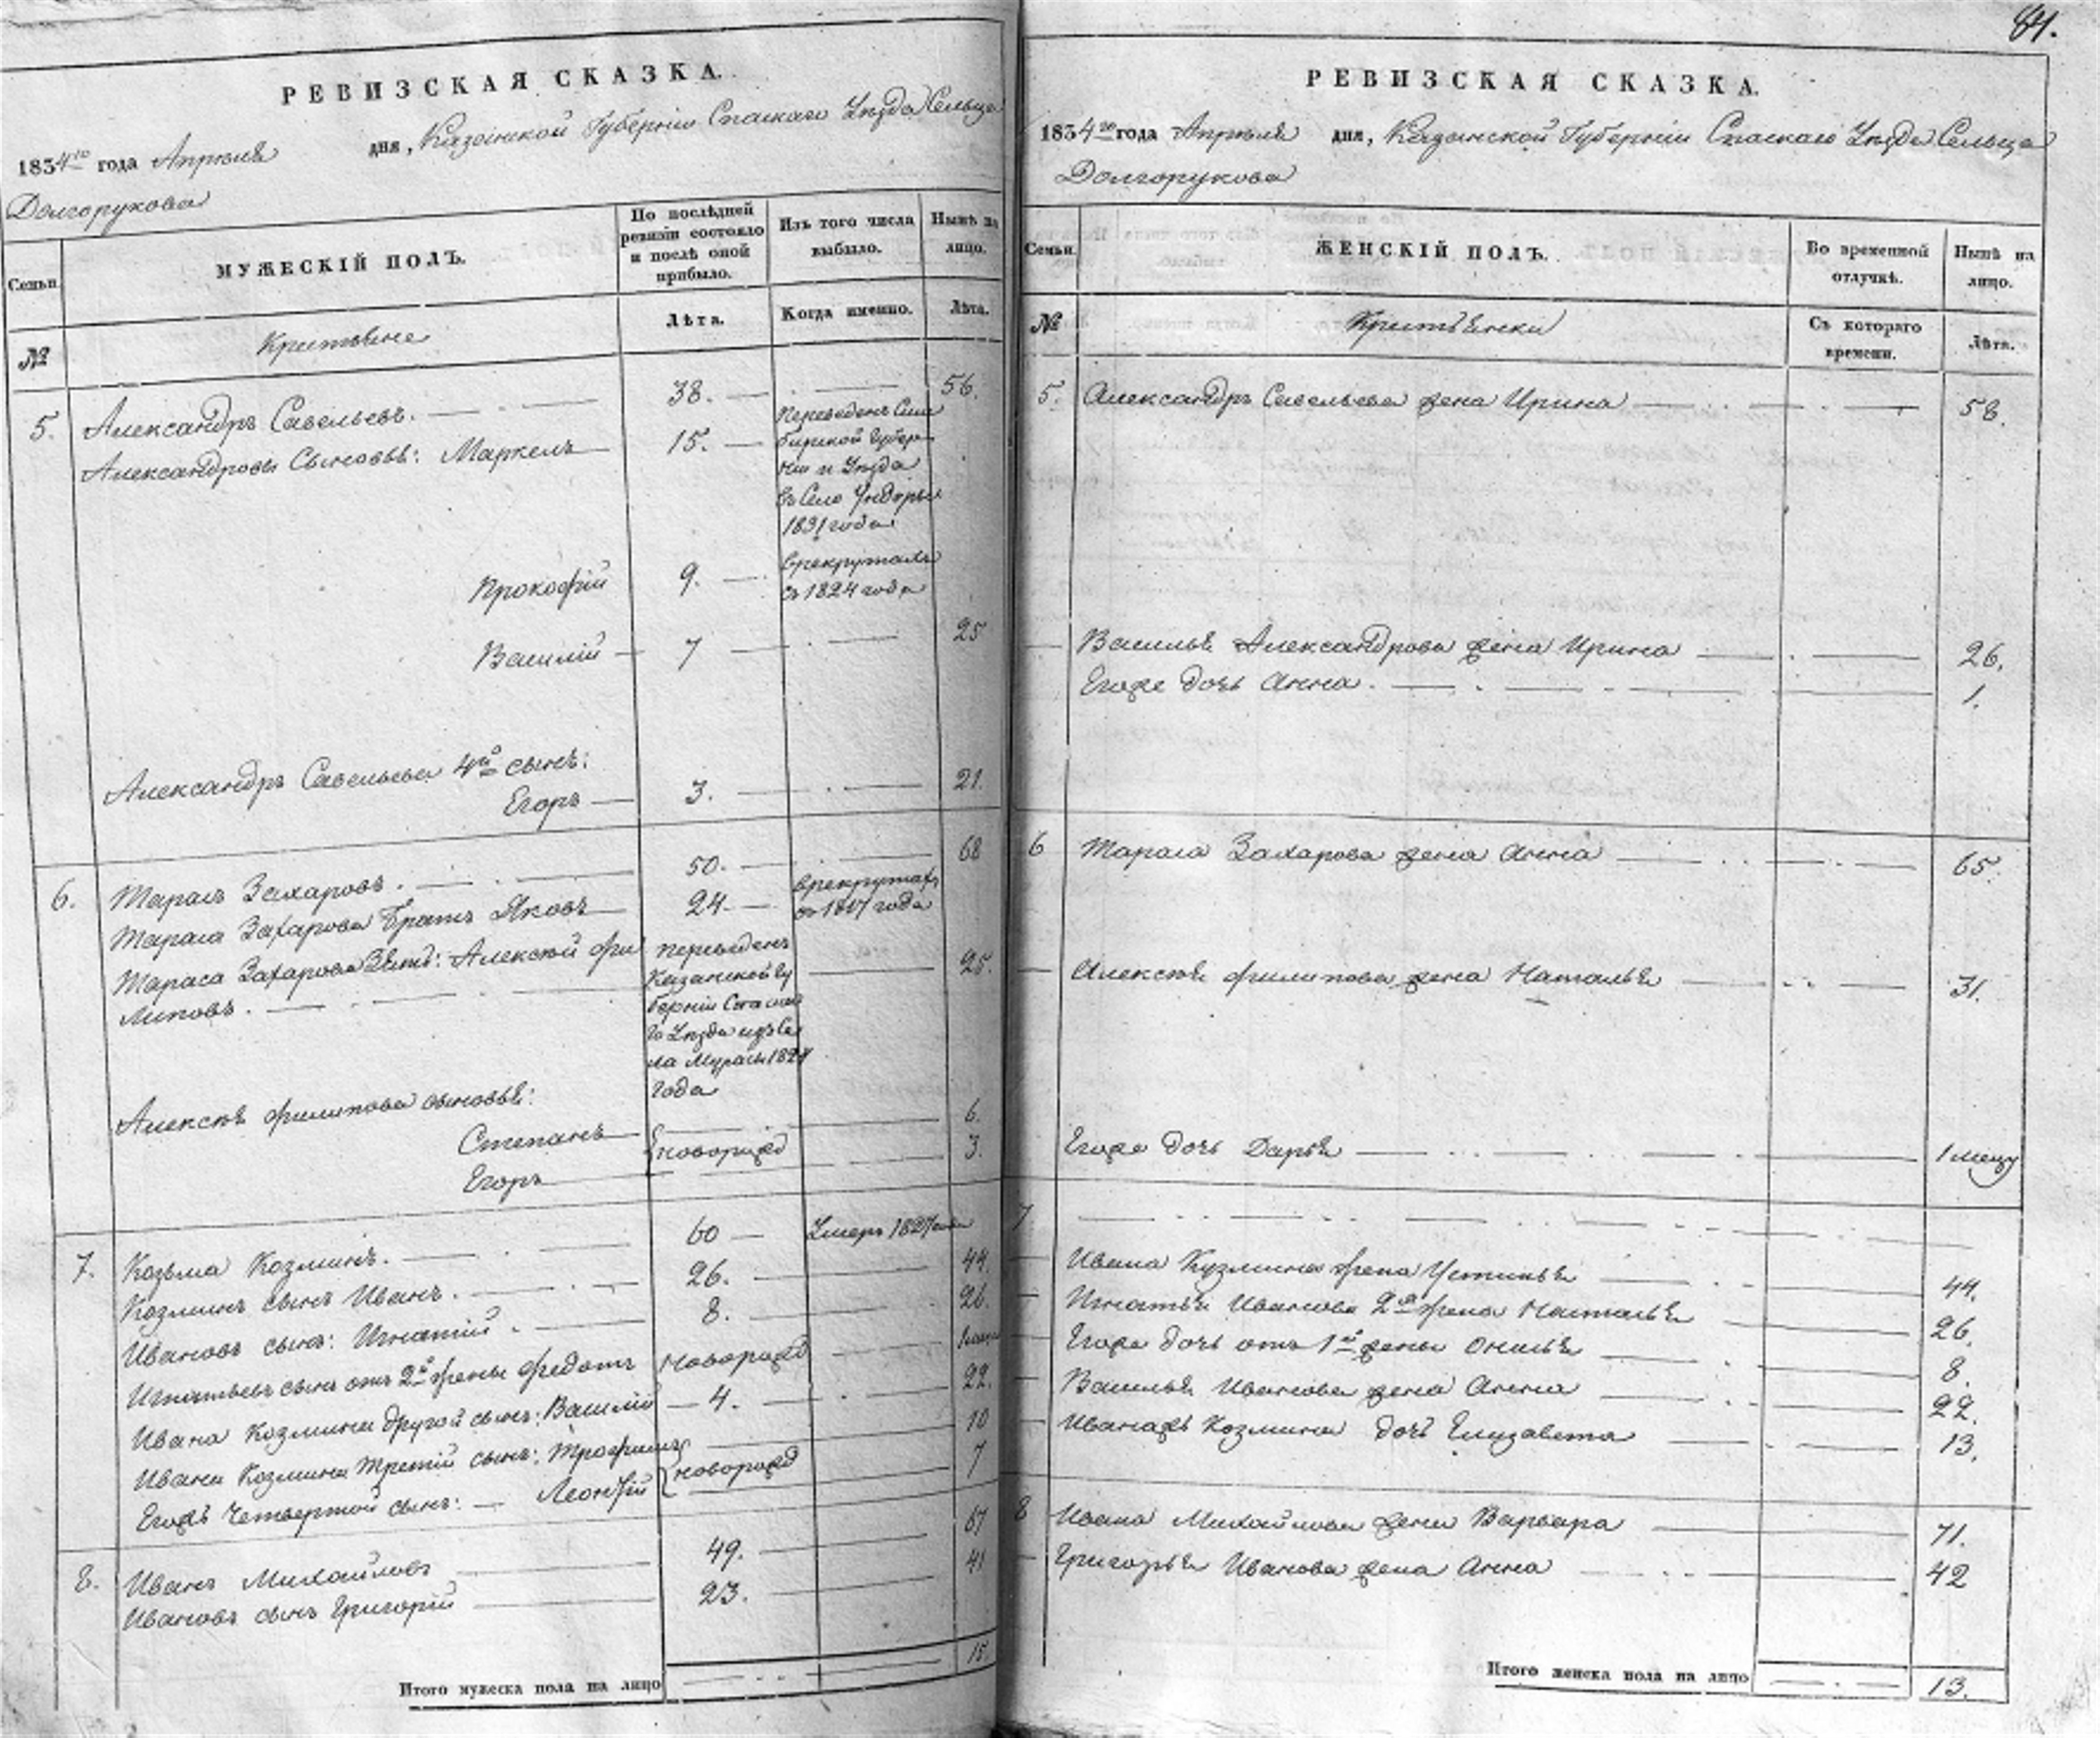 РЕВИЗСКАЯ СКАЗКА.
1834го года Апреля дня, Казанской Губернiи Спаскаго Уѣзда Сельца
Долгорукова
Семьи
МУЖЕСКIЙ ПОЛЪ.
По послѣдней
ревизiи состояло
и послѣ оной
прибыло.
Изъ того числа
выбыло.
Нынѣ на
лицо.
№
Крестьяне
Лѣта.
Когда именно.
Лѣта.
5. Александръ Савельевъ. 38. 56.
Александровы Сыновья: Маркелъ 15.
Переведенъ Сим
бирской Губер
нiи и Уѣзда
въ Село Ундоры
1831 года
Прокофiй 9.
Врекрутахъ
съ 1824 года
Василiй 7 25
Александръ Савельева 4й сынъ:
Егоръ 3. 21.
6. Тарасъ Захаровъ. 50. 68
Тараса Захарова братъ Яковъ 24.
врекрутахъ
года
Тараса Захарова Зять: Алексей Фи
липовъ. 25.
переведенъ
Казанской гу
бернiи Спаска
го Уѣзда изъ Се
ла Мурасы
года
Алексѣя Филипова сыновья:
Степанъ 6.
новорожд
Егоръ 3.
7. Козьма Козминъ. 60 Умеръ 1827 года
Козминъ сынъ Иванъ. 26. 44.
Ивановъ сынъ: Игнатiй 8. 26.
Игнатьевъ сынъ отъ 2й жены Федотъ новорожд
Ивана Козмина другой сынъ: Василiй 4. 22.
Ивана Козмина третiй сынъ: Трофимъ 10
новорожд
Егожъ четвертой сынъ: Леонтiй 7
8. Иванъ Михайловъ 49. 67
Ивановъ сынъ Григорiй 23. 41
Итого мужеска пола на лицо 15.
84.
РЕВИЗСКАЯ СКАЗКА.
1834го года Апреля дня, Казанской Губернiи Спаскаго Уѣзда Сельца
Долгорукова
Семьи
ЖЕНСКIЙ ПОЛЪ.
Во временной
отлучкѣ.
Нынѣ на
лицо.
№
Крестьянки
Съ котораго
времени.
Лѣта.
5. Александръ Савельева жена Ирина 58.
Василья Александрова жена Ирина 26.
Егоже дочь Анна. 1.
6 Тараса Захарова жена Анна 65.
Алексѣя Филипова жена Наталья 31.
Егоже дочь Дарья 1 месцу
7
Ивана Кузмина жена Устинья 44.
Игнатья Иванова 2я жена Наталья 26.
Егоже дочь отъ 1й жены 8.
Василья Иванова жена Анна 22.
Иванажъ Козмина дочь Елизавета 13.
8 Ивана Михайлова жена Варвара 71.
Григорья Иванова жена Анна 42
Итого женска пола на лицо 13.